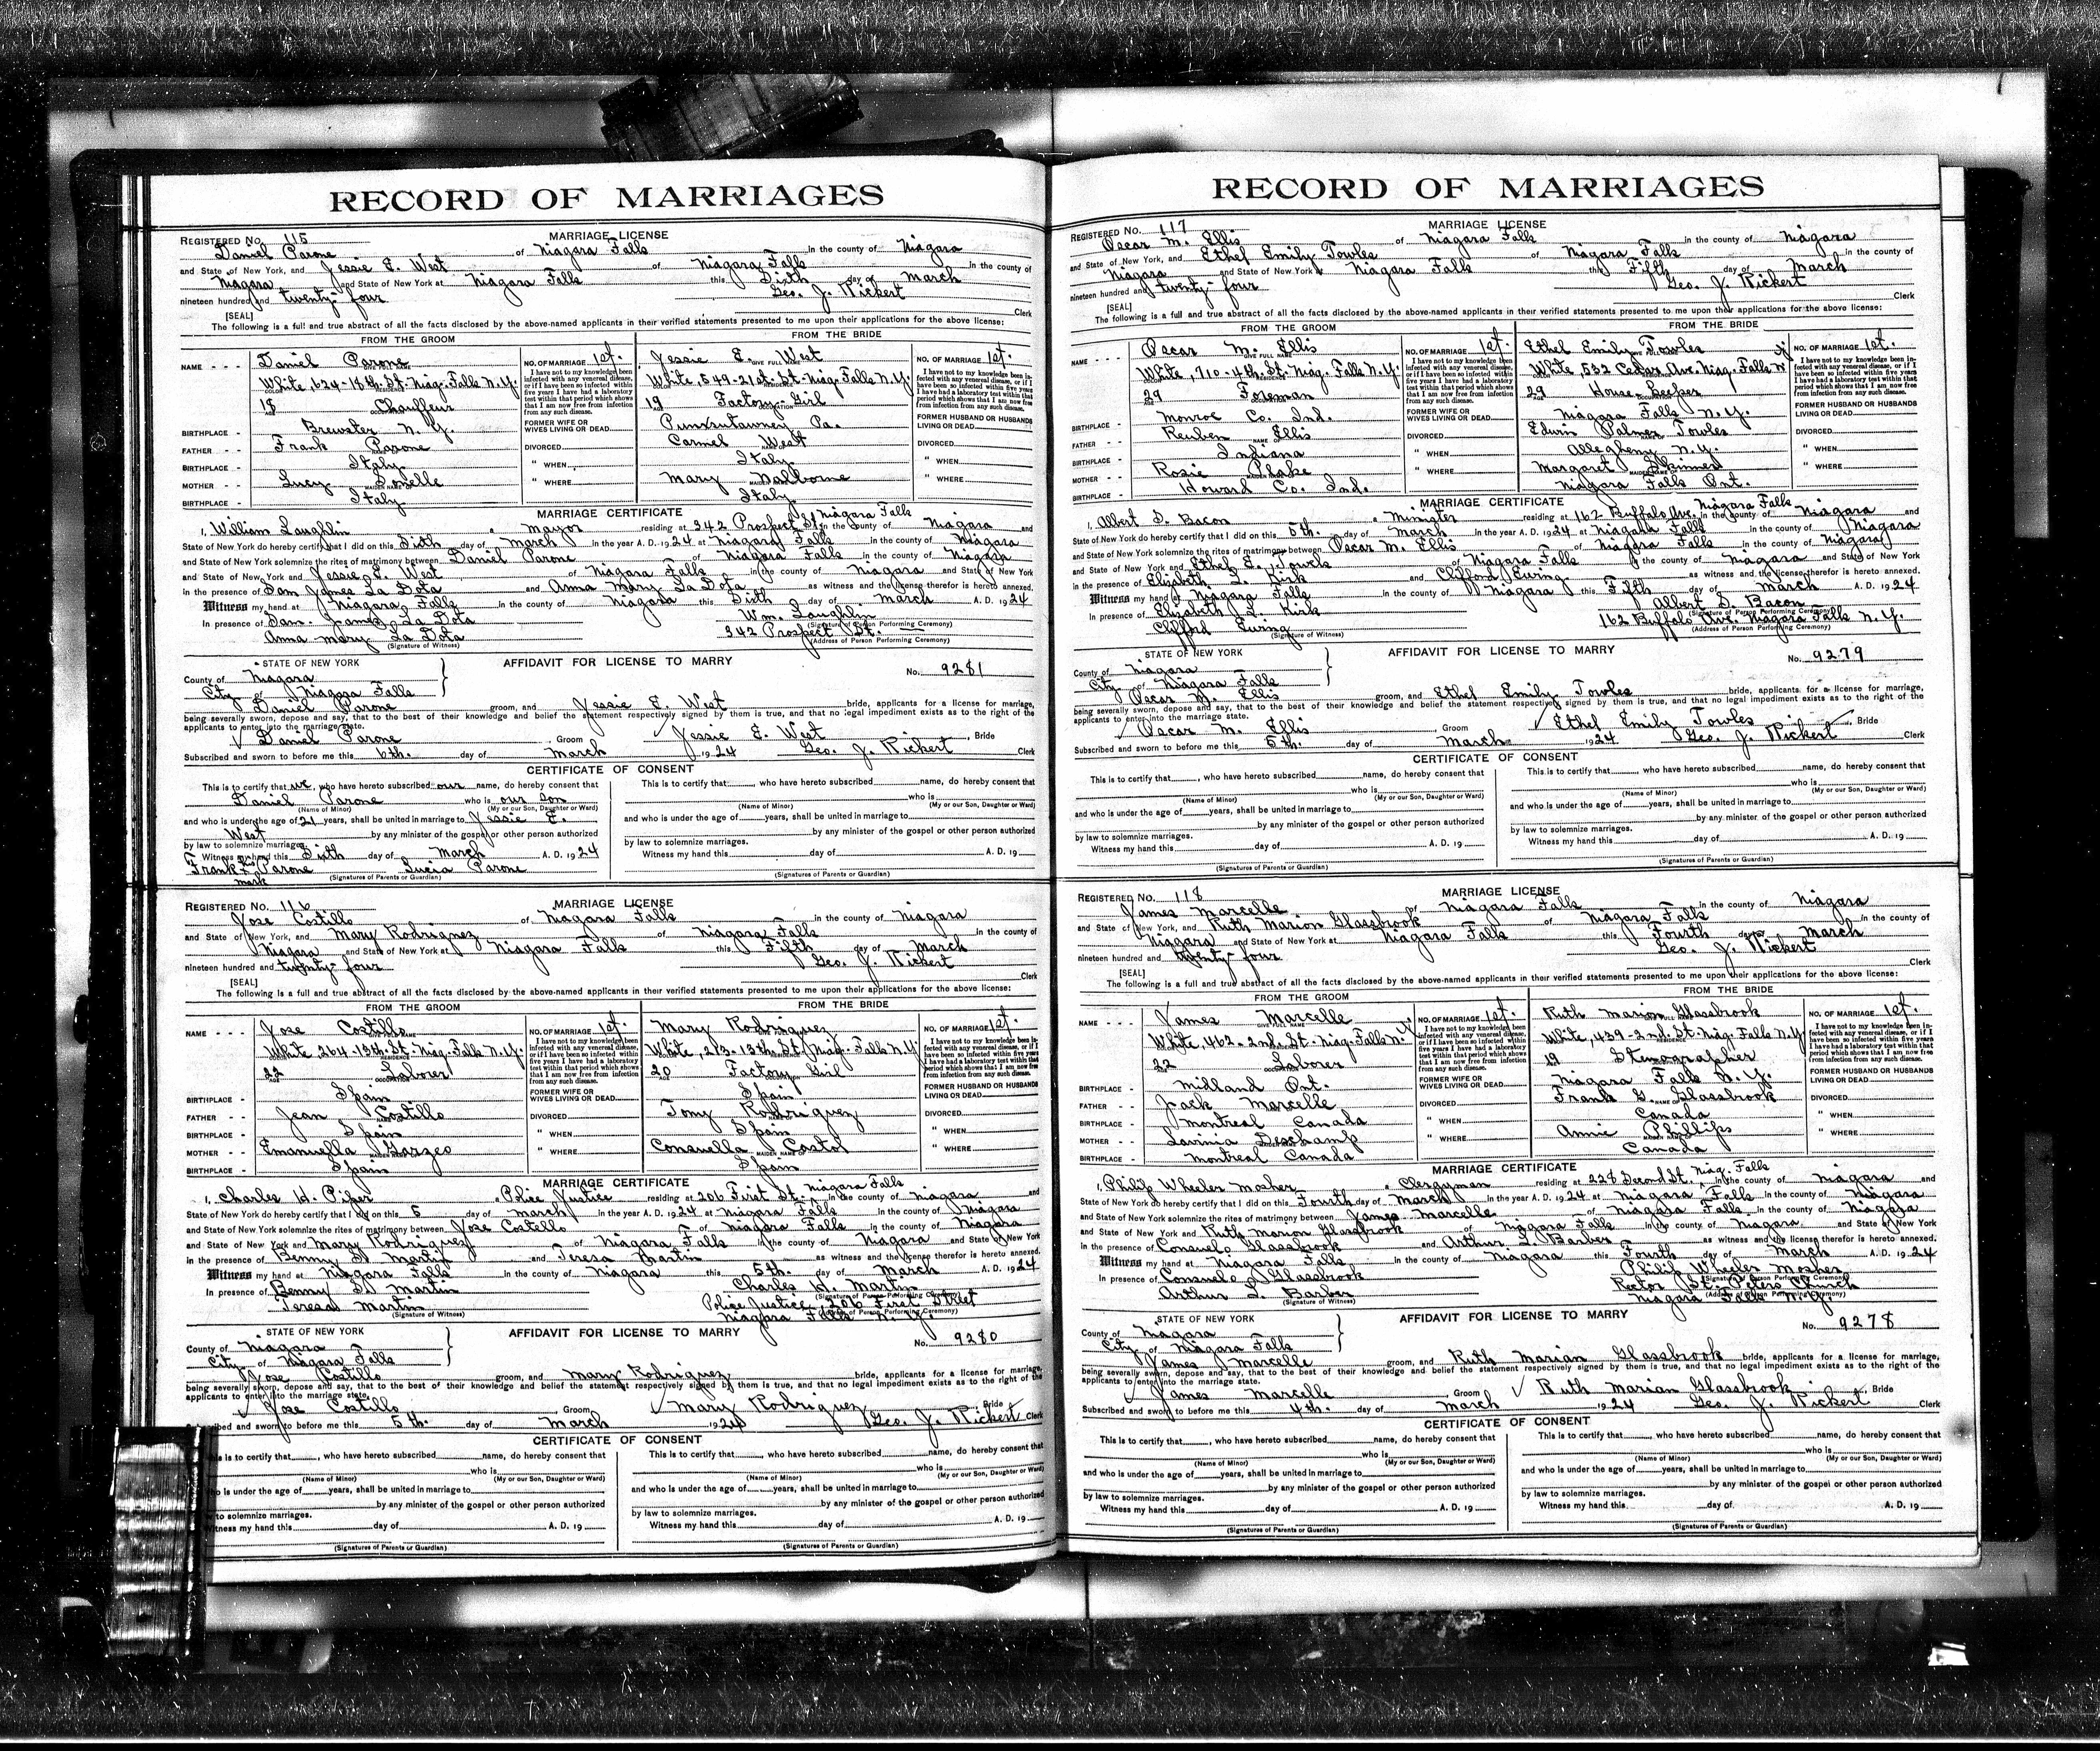 RECORD OF MARRIAGES
REGISTERED No. 115 MARRIAGE LICENSE
Daniel Parone of Niagara Falls in the county of Niagara
and State of New York, and Jessie E. West of Niagara Falls in the county of
Niagara and State of New York at Niagara Falls this Sixth day of March
nineteen hundred and twenty-four Geo. J. Rickert
[SEAL] Clerk
The following is a full and true abstract of all the facts disclosed by the above-named applicants in their verified statements presented to me upon their applications for the above license:
FROM THE GROOM FROM THE BRIDE
NAME - - - Daniel Parone NO. OF MARRIAGE 1st. Jessie E. West NO. OF MARRIAGE 1st.
White 624-18th St. Niag. Falls N.Y. White, 549-21st St. Niag. Falls N.Y.
I have not to my knowledge been infected with any venereal disease, or if I have been so infected within five years I have had a laboratory test within that period which shows that I am now free from infection from any such disease.
Chauffeur 19 Factory Girl
BIRTHPLACE - Brewster N.Y. FORMER WIFE OR WIVES LIVING OR DEAD Punxsutawney Pa. FORMER HUSBAND OR HUSBANDS LIVING OR DEAD
FATHER - - Frank Parone DIVORCED Carmel West DIVORCED
BIRTHPLACE - Italy " WHEN Italy " WHEN
MOTHER - - Lucy " WHERE Mary " WHERE
BIRTHPLACE - Italy Italy
MARRIAGE CERTIFICATE
I, William Laughlin a Mayor residing at 242 Prospect St. Niagara Falls in the county of Niagara and
State of New York do hereby certify that I did on this Sixth day of March in the year A. D. 1924 at Niagara Falls in the county of Niagara
and State of New York solemnize the rites of matrimony between Daniel Parone of Niagara Falls in the county of Niagara
and State of New York and Jessie E. West of Niagara Falls in the county of Niagara and State of New York
in the presence of Sam James La Dota and Anna Mary La Dota as witness and the license therefor is hereto annexed.
Witness my hand at Niagara Falls in the county of Niagara this Sixth day of March A. D. 1924
In presence of Sam. James La Dota Wm. Laughlin
(Signature of Person Performing Ceremony)
Anna Mary La Dota 242 Prospect St.
(Signature of Witness) (Address of Person Performing Ceremony)
STATE OF NEW YORK AFFIDAVIT FOR LICENSE TO MARRY No. 9281
County of Niagara
City of Niagara Falls
Daniel Parone groom, and Jessie E. West bride, applicants for a license for marriage,
being severally sworn, depose and say, that to the best of their knowledge and belief the statement respectively signed by them is true, and that no legal impediment exists as to the right of the
applicants to enter into the marriage state.
Daniel Parone Groom Jessie E. West, Bride
Subscribed and sworn to before me this 6th. day of March 1924 Geo. J. Rickert Clerk
CERTIFICATE OF CONSENT
This is to certify that we, who have hereto subscribed our name, do hereby consent that
Daniel Parone who is our son
(Name of Minor) (My or our Son, Daughter or Ward)
and who is under the age of 21 years, shall be united in marriage to Jessie E.
West by any minister of the gospel or other person authorized
by law to solemnize marriages.
Witness my hand this Sixth day of March A. D. 1924
Frank his x mark Parone Lucia Parone
(Signatures of Parents or Guardian)
This is to certify that, who have hereto subscribed name, do hereby consent that
who is
(Name of Minor) (My or our Son, Daughter or Ward)
and who is under the age of years, shall be united in marriage to
by any minister of the gospel or other person authorized
by law to solemnize marriages.
Witness my hand this day of A. D. 19
(Signatures of Parents or Guardian)
REGISTERED No. 116 MARRIAGE LICENSE
Jose Costillo of Niagara Falls in the county of Niagara
and State of New York, and Mary Rodriguez of Niagara Falls in the county of
Niagara and State of New York at Niagara Falls this Fifth day of March
nineteen hundred and twenty-four Geo. J. Rickert
[SEAL] Clerk
The following is a full and true abstract of all the facts disclosed by the above-named applicants in their verified statements presented to me upon their applications for the above license:
FROM THE GROOM FROM THE BRIDE
NAME - - - Jose Costillo NO. OF MARRIAGE 1st. Mary Rodriguez NO. OF MARRIAGE 1st.
White 264-13th St. Niag. Falls N.Y. White, 213-13th St. Niag. Falls N.Y.
I have not to my knowledge been infected with any venereal disease, or if I have been so infected within five years I have had a laboratory test within that period which shows that I am now free from infection from any such disease.
22 Laborer 20 Factory Girl
BIRTHPLACE - Spain FORMER WIFE OR WIVES LIVING OR DEAD Spain FORMER HUSBAND OR HUSBANDS LIVING OR DEAD
FATHER - - Jean Costillo DIVORCED Tony Rodriguez DIVORCED
BIRTHPLACE - Spain " WHEN Spain " WHEN
MOTHER - - Emanuella Garzeo " WHERE Consuella Castol " WHERE
BIRTHPLACE - Spain Spain
MARRIAGE CERTIFICATE
I, Charles H. Piper a Police Justice residing at 206 First St. Niagara Falls in the county of Niagara and
State of New York do hereby certify that I did on this 5 day of March in the year A. D. 1924 at Niagara Falls in the county of Niagara
and State of New York solemnize the rites of matrimony between Jose Costello of Niagara Falls in the county of Niagara
and State of New York and Mary Rodriguez of Niagara Falls in the county of Niagara and State of New York
in the presence of Benny Martin and Teresa Martin as witness and the license therefor is hereto annexed.
Witness my hand at Niagara Falls in the county of Niagara this 5th. day of March A. D. 1924
In presence of Benny Martin Charles H. Martin
(Signature of Person Performing Ceremony)
Teresa Martin Police Justice, 206 First Street
(Signature of Witness) Niagara Falls N.Y.
(Address of Person Performing Ceremony)
STATE OF NEW YORK AFFIDAVIT FOR LICENSE TO MARRY No. 9280
County of Niagara
City of Niagara Falls
Jose Costillo groom, and Mary Rodriguez bride, applicants for a license for marriage,
being severally sworn, depose and say, that to the best of their knowledge and belief the statement respectively signed by them is true, and that no legal impediment exists as to the right of the
applicants to enter into the marriage state.
Jose Costillo, Groom Mary Rodriguez, Bride
bed and sworn to before me this 5th. day of March 1924 Geo. J. Rickert Clerk
CERTIFICATE OF CONSENT
is to certify that, who have hereto subscribed name, do hereby consent that
who is
(Name of Minor) (My or our Son, Daughter or Ward)
is under the age of years, shall be united in marriage to
by any minister of the gospel or other person authorized
to solemnize marriages.
Witness my hand this day of A. D. 19
(Signatures of Parents or Guardian)
This is to certify that, who have hereto subscribed name, do hereby consent that
who is
(Name of Minor) (My or our Son, Daughter or Ward)
and who is under the age of years, shall be united in marriage to
by any minister of the gospel or other person authorized
by law to solemnize marriages.
Witness my hand this day of A. D. 19
(Signatures of Parents or Guardian)
RECORD OF MARRIAGES
REGISTERED No. 117 MARRIAGE LICENSE
Oscar M. Ellis of Niagara Falls in the county of Niagara
and State of New York, and Ethel Emily Towles of Niagara Falls in the county of
Niagara and State of New York Niagara Falls this Fifth day of March
nineteen hundred and twenty-four Geo. J. Rickert
[SEAL] Clerk
The following is a full and true abstract of all the facts disclosed by the above-named applicants in their verified statements presented to me upon their applications for the above license:
FROM THE GROOM FROM THE BRIDE
NAME - - - Oscar M. Ellis NO. OF MARRIAGE 1st. Ethel Emily Towles NO. OF MARRIAGE 1st.
White, 710-4th St. Niag. Falls N.Y. White 532 Cedar Ave. Niag. Falls N.Y.
I have not to my knowledge been infected with any venereal disease, or if I have been so infected within five years I have had a laboratory test within that period which shows that I am now free from infection from any such disease.
29 Foreman 29 House keeper
BIRTHPLACE - Monroe Co. Ind. FORMER WIFE OR WIVES LIVING OR DEAD Niagara Falls N.Y. FORMER HUSBAND OR HUSBANDS LIVING OR DEAD
FATHER - - Reuben Ellis DIVORCED Edwin Palmer Towles DIVORCED
BIRTHPLACE - Indiana " WHEN Allegheny N.Y. " WHEN
MOTHER - - Rosie Phake " WHERE Margaret Skinner " WHERE
BIRTHPLACE - Howard Co. Ind. Niagara Falls Ont.
MARRIAGE CERTIFICATE
I, Albert S. Bacon a Minister residing at 162 Buffalo Ave. Niagara Falls in the county of Niagara and
State of New York do hereby certify that I did on this 5th. day of March in the year A. D. 1924 at Niagara Falls in the county of Niagara
and State of New York solemnize the rites of matrimony between Oscar M. Ellis of Niagara Falls in the county of Niagara
and State of New York and Ethel E. Towles of Niagara Falls in the county of Niagara and State of New York
in the presence of Elizabeth L. Kirk and Clifford Ewing as witness and the license therefor is hereto annexed.
Witness my hand at Niagara Falls in the county of Niagara this Fifth day of March A. D. 1924
In presence of Elizabeth L. Kirk Albert S. Bacon
(Signature of Person Performing Ceremony)
Clifford Ewing 162 Buffalo Ave. Niagara Falls N.Y.
(Signature of Witness) (Address of Person Performing Ceremony)
STATE OF NEW YORK AFFIDAVIT FOR LICENSE TO MARRY No. 9279
County of Niagara
City of Niagara Falls
Oscar M. Ellis groom, and Ethel Emily Towles bride, applicants for a license for marriage,
being severally sworn, depose and say, that to the best of their knowledge and belief the statement respectively signed by them is true, and that no legal impediment exists as to the right of the
applicants to enter into the marriage state.
Oscar M. Ellis Groom Ethel Emily Towles, Bride
Subscribed and sworn to before me this 5th. day of March 1924 Geo. J. Rickert Clerk
CERTIFICATE OF CONSENT
This is to certify that, who have hereto subscribed name, do hereby consent that
who is
(Name of Minor) (My or our Son, Daughter or Ward)
and who is under the age of years, shall be united in marriage to
by any minister of the gospel or other person authorized
by law to solemnize marriages.
Witness my hand this day of A. D. 19
(Signatures of Parents or Guardian)
This is to certify that, who have hereto subscribed name, do hereby consent that
who is
(Name of Minor) (My or our Son, Daughter or Ward)
and who is under the age of years, shall be united in marriage to
by any minister of the gospel or other person authorized
by law to solemnize marriages.
Witness my hand this day of A. D. 19
(Signatures of Parents or Guardian)
REGISTERED No. 118 MARRIAGE LICENSE
James Marcelle of Niagara Falls in the county of Niagara
and State of New York, and Ruth Marion Glassbrook of Niagara Falls in the county of
Niagara and State of New York at Niagara Falls this Fourth day of March
nineteen hundred and twenty-four Geo. J. Rickert
[SEAL] Clerk
The following is a full and true abstract of all the facts disclosed by the above-named applicants in their verified statements presented to me upon their applications for the above license:
FROM THE GROOM FROM THE BRIDE
NAME - - - James Marcelle NO. OF MARRIAGE 1st. Ruth Marion Glassbrook NO. OF MARRIAGE 1st.
White, 462-2nd. St. Niag. Falls N.Y. White, 439-2nd. St. Niag. Falls N.Y.
I have not to my knowledge been infected with any venereal disease, or if I have been so infected within five years I have had a laboratory test within that period which shows that I am now free from infection from any such disease.
22 Laborer 19 Stenographer
BIRTHPLACE - Midland Ont. FORMER WIFE OR WIVES LIVING OR DEAD Niagara Falls N.Y. FORMER HUSBAND OR HUSBANDS LIVING OR DEAD
FATHER - - Jack Marcelle DIVORCED Frank G. Glassbrook DIVORCED
BIRTHPLACE - Montreal Canada " WHEN Canada " WHEN
MOTHER - - Lavinia Deschamp " WHERE Annie Phillips " WHERE
BIRTHPLACE - Montreal Canada Canada
MARRIAGE CERTIFICATE
I, Philip Wheeler Mosher a Clergyman residing at 228 Second St. Niag. Falls in the county of Niagara and
State of New York do hereby certify that I did on this Fourth day of March in the year A. D. 1924 at Niagara Falls in the county of Niagara
and State of New York solemnize the rites of matrimony between James Marcelle of Niagara Falls in the county of Niagara
and State of New York and Ruth Marion Glassbrook of Niagara Falls in the county of Niagara, and State of New York
in the presence of Consuelo Glassbrook and Arthur L. Barber as witness and the license therefor is hereto annexed.
Witness my hand at Niagara Falls in the county of Niagara this Fourth day of March A. D. 1924
In presence of Consuelo Glassbrook Philip Wheeler Mosher
(Signature of Person Performing Ceremony)
Arthur L. Barber Rector St. Peters Church
(Signature of Witness) Niagara Falls N.Y.
(Address of Person Performing Ceremony)
STATE OF NEW YORK AFFIDAVIT FOR LICENSE TO MARRY No. 9278
County of Niagara
City of Niagara Falls
James Marcelle groom, and Ruth Marian Glassbrook bride, applicants for a license for marriage,
being severally sworn, depose and say, that to the best of their knowledge and belief the statement respectively signed by them is true, and that no legal impediment exists as to the right of the
applicants to enter into the marriage state.
James Marcelle, Groom Ruth Marian Glassbrook, Bride
Subscribed and sworn to before me this 4th. day of March 1924 Geo. J. Rickert Clerk
CERTIFICATE OF CONSENT
This is to certify that, who have hereto subscribed name, do hereby consent that
who is
(Name of Minor) (My or our Son, Daughter or Ward)
and who is under the age of years, shall be united in marriage to
by any minister of the gospel or other person authorized
by law to solemnize marriages.
Witness my hand this day of A. D. 19
(Signatures of Parents or Guardian)
This is to certify that, who have hereto subscribed name, do hereby consent that
who is
(Name of Minor) (My or our Son, Daughter or Ward)
and who is under the age of years, shall be united in marriage to
by any minister of the gospel or other person authorized
by law to solemnize marriages.
Witness my hand this day of A. D. 19
(Signatures of Parents or Guardian)